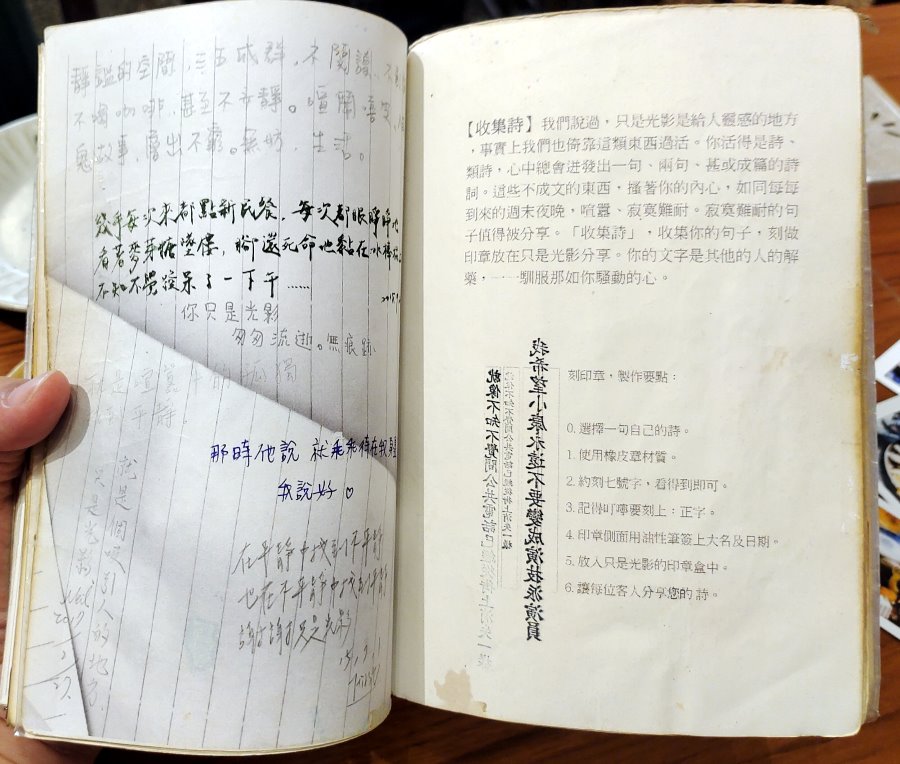 靜謐的空間，三五成群，不鬧讀、不
不喝咖啡，甚至不安靜。
故事，
幾乎每次來都點新民餐，每次都眼睜睜地
看著麥芽糖墜落，腳還死命地黏在冰棒
不知不覺發呆了一下午……
你只是光影
匆匆流逝。無痕跡
平靜。
就是個吸引人的地方
只是光影
那時他說 就乖乖待在我身邊
我說好♡
在平靜中找到不平靜
也在不平靜中找到平靜
謝謝只是光影
【收集詩】我們說過，只是光影是給人靈感的地方
，事實上我們也倚靠這類東西過活。你活得是詩、
類詩，心中總會迸發出一句、兩句、甚或成篇的詩
詞。這些不成文的東西，搔著你的內心，如同每每
到來的週末夜晚，喧囂、寂寞難耐。寂寞難耐的句
子值得被分享。「收集詩」，收集你的句子，刻做
印章放在只是光影分享。你的文字是其他的人的解
藥，一一馴服那如你騷動的心。
我希望小康永遠不要變成演技派演員
就像不知不覺間公共電話已經從街上消失一樣
刻印章，製作要點：
0.選擇一句自己的詩。
1.使用橡皮章材質。
2.約刻七號字，看得到即可。
3.記得叮嚀要刻上：正字。
4.印章側面用油性筆簽上大名及日期。
5.放入只是光影的印章盒中。
6.讓每位客人分享您的詩。